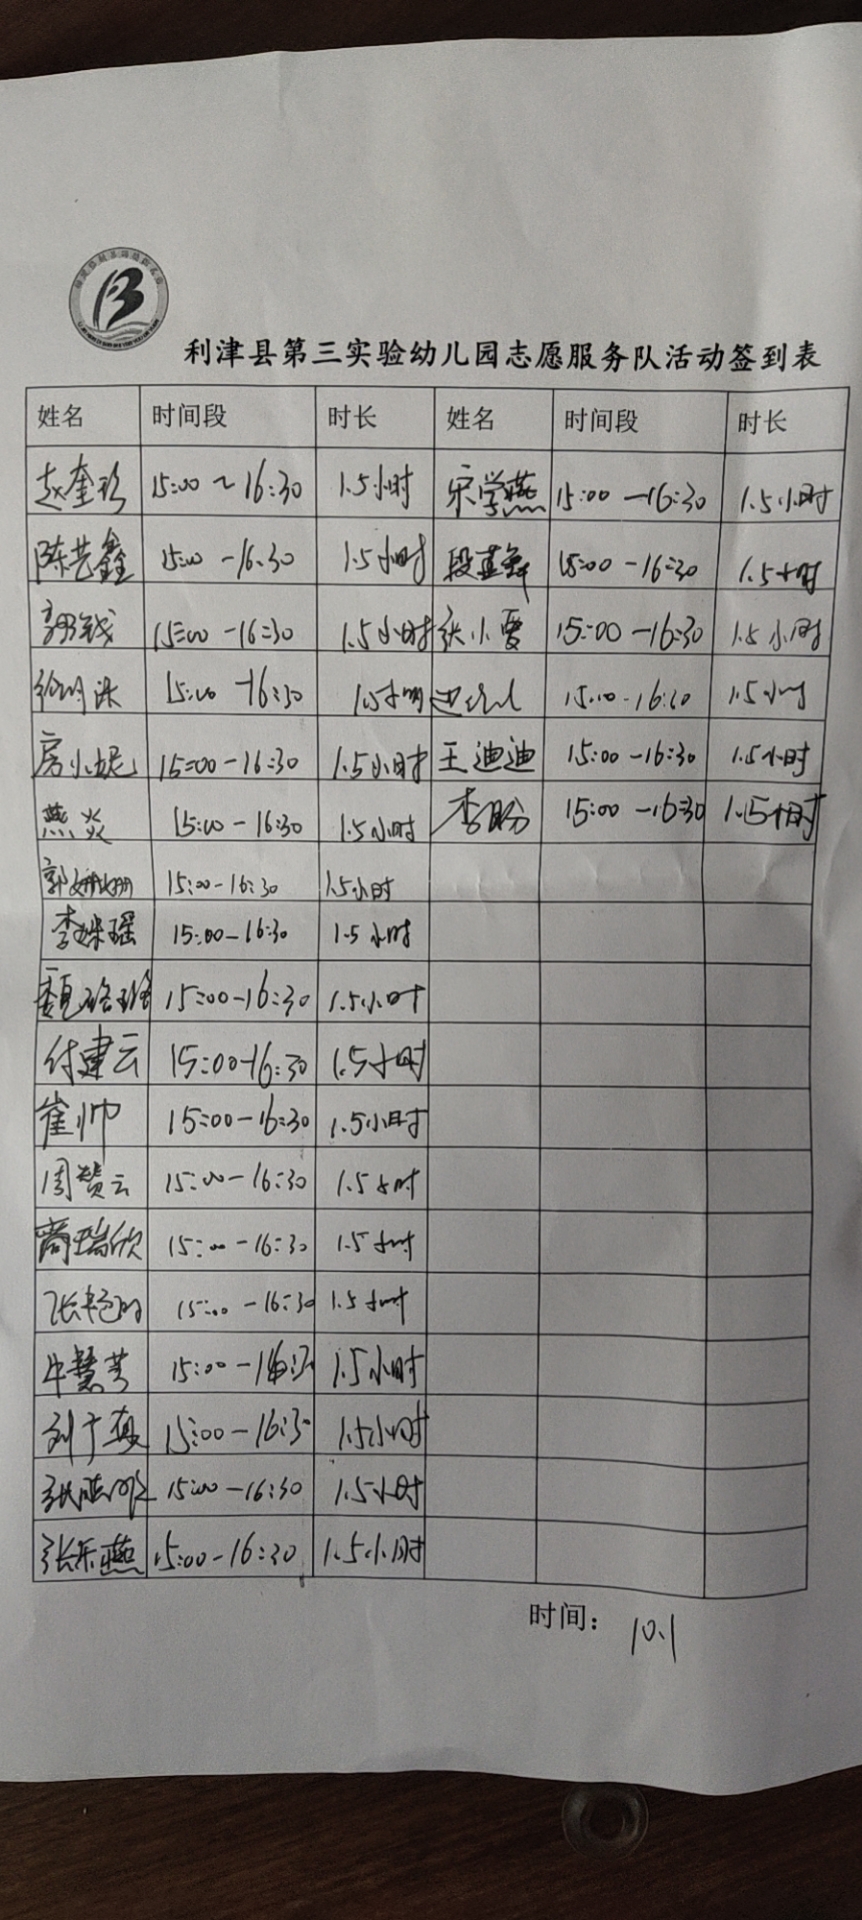 利津县第三实验幼儿园志愿服务队活动签到表
姓名 时间段 时长 姓名 时间段 时长
赵奎珍 15:00～16:30 1.5小时 宋学燕 15:00－16:30 1.5小时
陈艺鑫 15:00－16:30 1.5小时 15:00－16:30 1.5小时
15:00－16:30 1.5小时 张小雯 15:00－16:30 1.5小时
15:00－16:30 1.5小时 15:00－16:30 1.5小时
房小妮 15:00－16:30 1.5小时 王迪迪 15:00－16:30 1.5小时
燕炎 15:00－16:30 1.5小时 李盼 15:00－16:30 1.5小时
郭姗姗 15:00－16:30 1.5小时
李姝瑶 15:00－16:30 1.5小时
魏珞璐 15:00－16:30 1.5小时
付建云 15:00－16:30 1.5小时
崔帅 15:00－16:30 1.5小时
周赞云 15:00－16:30 1.5小时
商瑞欣 15:00－16:30 1.5小时
15:00－16:30 1.5小时
牛慧芳 15:00－16:30 1.5小时
15:00－16:30 1.5小时
15:00－16:30 1.5小时
张乐燕 15:00－16:30 1.5小时
时间： 10.1